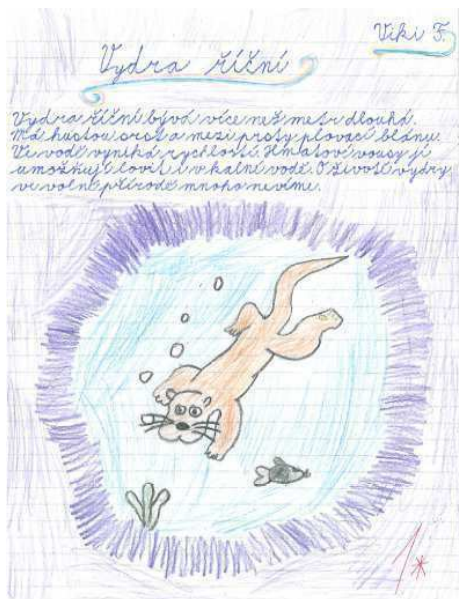 Viki F.
Vydra říční
Vydra říční bývá více než metr dlouhá.
Má hustou srst a mezi prsty plovací blánu.
Ve vodě vyniká rychlostí. Hmatové vousy jí
umožňují lovit i v kalné vodě. O životě vydry
ve volné přírodě mnoho nevíme.
1*